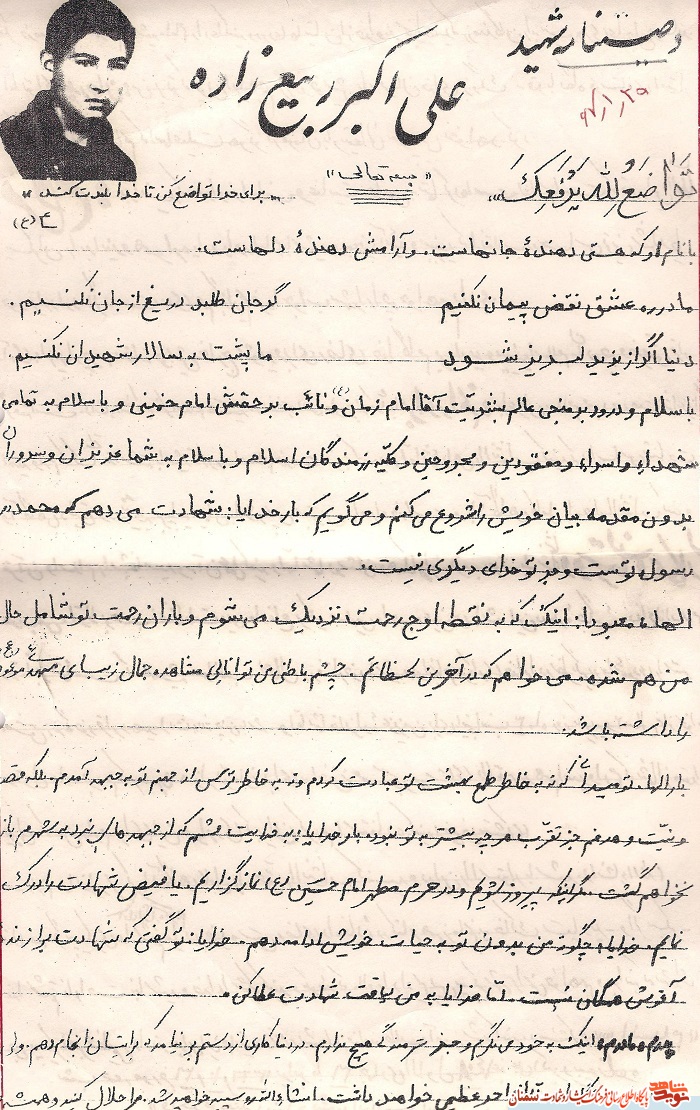 وصیتنامه شهید
علی اکبر ربیع زاده
۶۷/۱/۲۵
«بسمه تعالی»
تَواضَعْ لِلّٰهِ یَرْفَعْکَ
برای خدا تواضع کن تا خدا بلندت کند»
ع (ع)
بانام او که هستی دهندهٔ جانهاست. و آرامش دهندهٔ دلهاست.
ما در ره عشق نقض پیمان نکنیم گر جان طلبد دریغ از جان نکنیم.
دنیا اگر از یزید لبریز شود ما پشت به سالار شهیدان نکنیم.
باسلام و درود بر منجی عالم بشریت آقا امام زمان (عج) و نائب بر حقش امام خمینی و باسلام به تمامی
شهداء و اسراء و مفقودین و مجروحین و کلیّه رزمندگان اسلام و باسلام به شما عزیزان و سروران
بدون مقدمه بیان خویش را شروع می کنم و می گویم که بار خدایا: شهادت می دهم که محمد
رسول توست و جز تو خدای دیگری نیست.
الها، معبودا: اینک که به نقطه اوج رحمت نزدیک می شوم و باران رحمت تو شامل حال
من هم شده. می خواهم که در آخرین لحظاتم. چشم باطنی من توانائی مشاهده جمال زیبای مهدی موعود
را داشته باشد.
بارالها. تو میدانی که نه به خاطر طمع بهشت تو عبادت کردم و نه به خاطر ترس از جهنم تو به جبهه آمدم. بلکه قصد
و نیت و هدفم جز تقرّب هر چه بیشتر به تو نبود. بار خدایا: به خدائیت قسم که از جبهه های نبرد به شهرم باز
نخواهم گشت. مگر اینکه پیروز شویم و در حرم مطهر امام حسین (ع) نماز گزاریم. یا فیض شهادت را درک
نمایم. خدایا: چگونه من بدون تو به حیات خویش ادامه دهم. خدایا: تو گفتی که شهادت برازنده
آغوش همگان نیست. امّا خدایا به من لیاقت شهادت عطا کن.
پدرم، مادرم، اینک به خود می نگرم و جز شرمندگی هیچ ندارم. در دنیا کاری از دستم بر نیامد که برایتان انجام دهم. ولی
اجر عظیمی خواهید داشت. انشاءالله رو سپید خواهید شد. مرا حلال کنید و
نوید شاهد
پایگاه اطلاع رسانی فرهنگ ایثار و شهادت